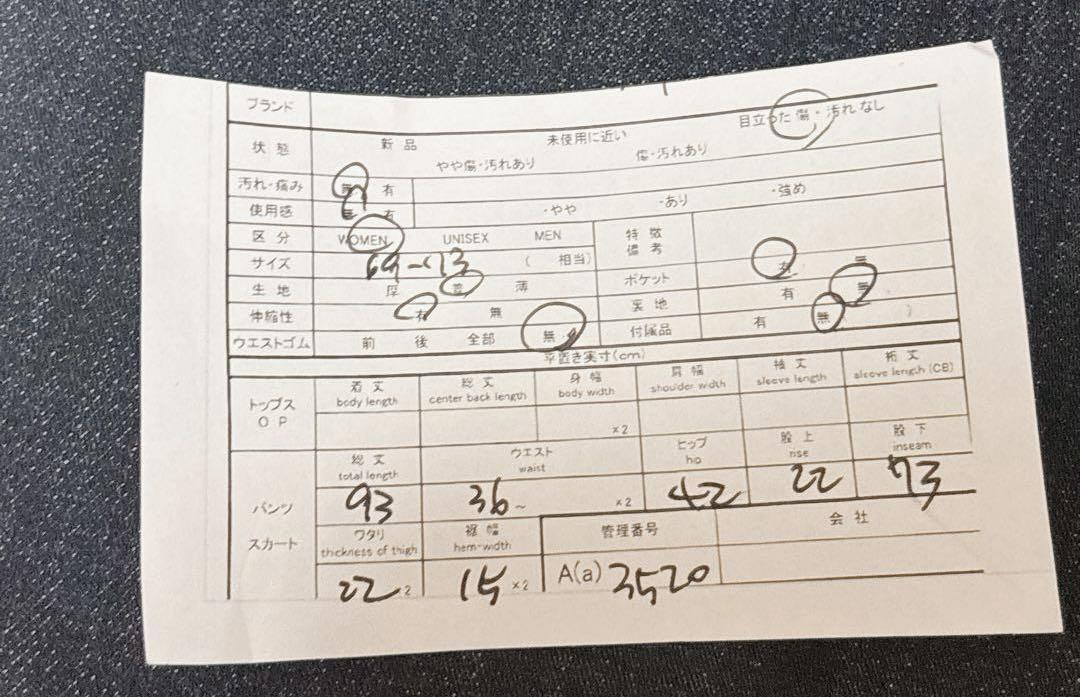 ブランド
状態 新品 未使用に近い 目立った傷・汚れなし
やや傷・汚れあり 傷・汚れあり
汚れ・痛み 無 有
使用感 無 有 ・やや ・あり ・強め
区分 WOMEN UNISEX MEN 特徴 備考
サイズ ( 相当)
生地 厚 普 薄 ポケット 有 無
伸縮性 有 無 裏地 有 無
ウエストゴム 前 後 全部 無 付属品 有 無 )
平置き実寸(cm)
トップス OP
着丈 総丈 身幅 肩幅 袖丈 裄丈
body length center back length body width shoulder width sleeve length sleeve length (CB)
×2
パンツ スカート
総丈 ウエスト ヒップ 股上 股下
total length waist hip rise inseam
93 36~ ×2 42 22 73
ワタリ 裾幅 管理番号 会社
thickness of thigh hem-width
22 2 15 ×2 A(a) 3520